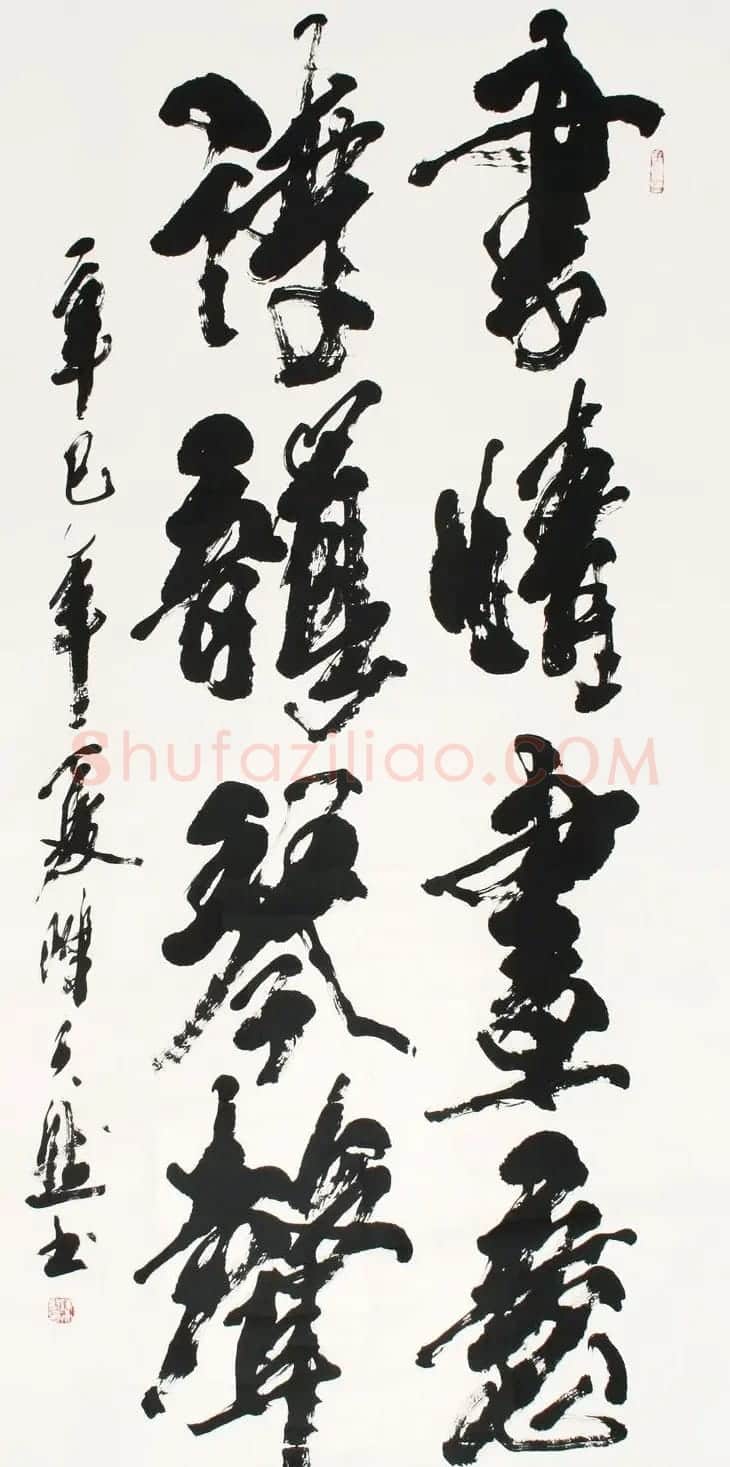 書情畫意
詩韻琴聲
辛巳年夏陳天然書
Shufaziliao.COM